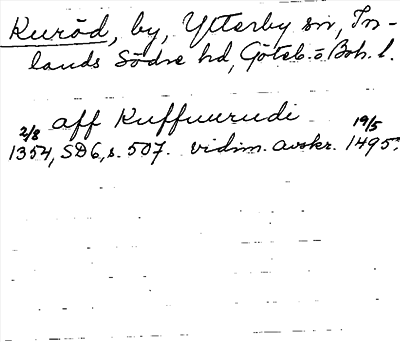 Kuröd, by, Ytterby sn, In-
lands Södre hd, Göteb. o. Boh. l.
aff Kuffuurudi
2/8 19/5
1354, SD 6, s. 507. vidim. avskr. 1495.